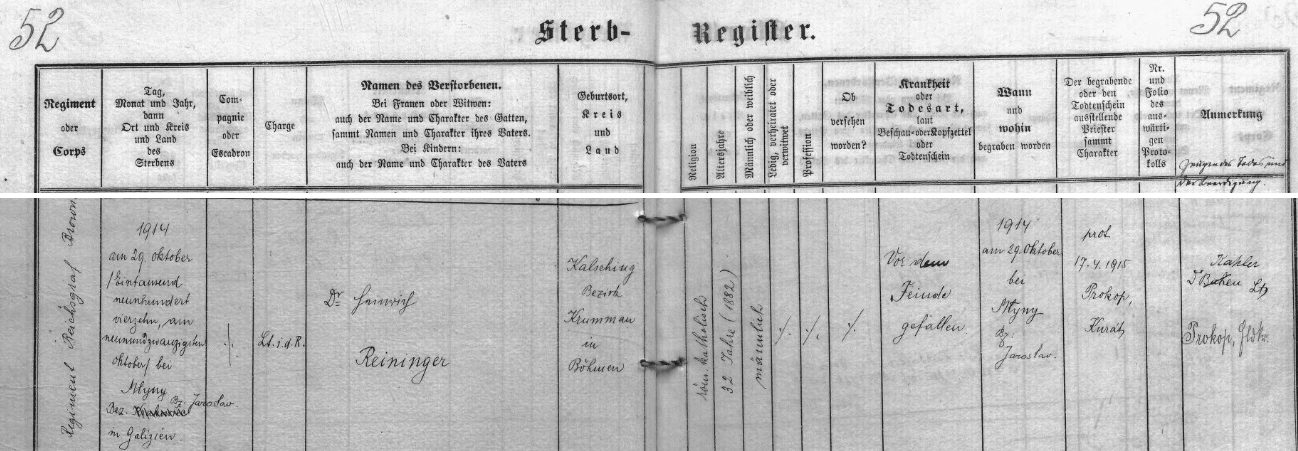 52
Sterb-Register.
52
Regiment
oder
Corps
Tag,
Monat und Jahr,
dann
Ort und Kreis
und Land
des
Sterbens
Com-
pagnie
oder
Escadron
Charge
Namen des Verstorbenen.
Bei Frauen oder Witwen:
auch der Name und Charakter des Gatten,
sammt Namen und Charakter ihres Vaters.
Bei Kindern:
auch der Name und Charakter des Vaters
Geburtsort,
Kreis
und
Land
Religion
Altersjahre
Männlich oder weiblich
Ledig, verheiratet oder
verwitwet
Profession
Ob
versehen
worden?
Krankheit
oder
Todesart,
laut
Beschau- oder Kopfzettel
oder
Todtenschein
Wann
und
wohin
begraben worden
Der begrabende
oder den
Todtenschein
ausstellende
Priester
sammt
Charakter
Nr.
und
Folio
des
aus-
wärti-
gen
Proto-
kolls
Anmerkung
Zeugen des Todes und
der Beerdigung.
Regiment Reichsgraf Brown
1914
am 29. Oktober
/Eintausend
neunhundert
vierzehn, am
neunundzwanzigsten
Oktober/ bei
Myny
Bez. Bz. Jaroslav
in Galizien.
./.
Lt. i. d. R.
Dr. Heinrich
Reininger
Kalsching
Bezirk
Krummau
in
Böhmen
röm. katholisch
32 Jahre (1882)
männlich
./.
./.
./.
Vor dem
Feinde
gefallen
1914
am 29. Oktober
bei
Myny
Bz.
Jaroslav.
prot
17.4.1915
Prokop,
Kurat
Kahler
Lt
Prokop,